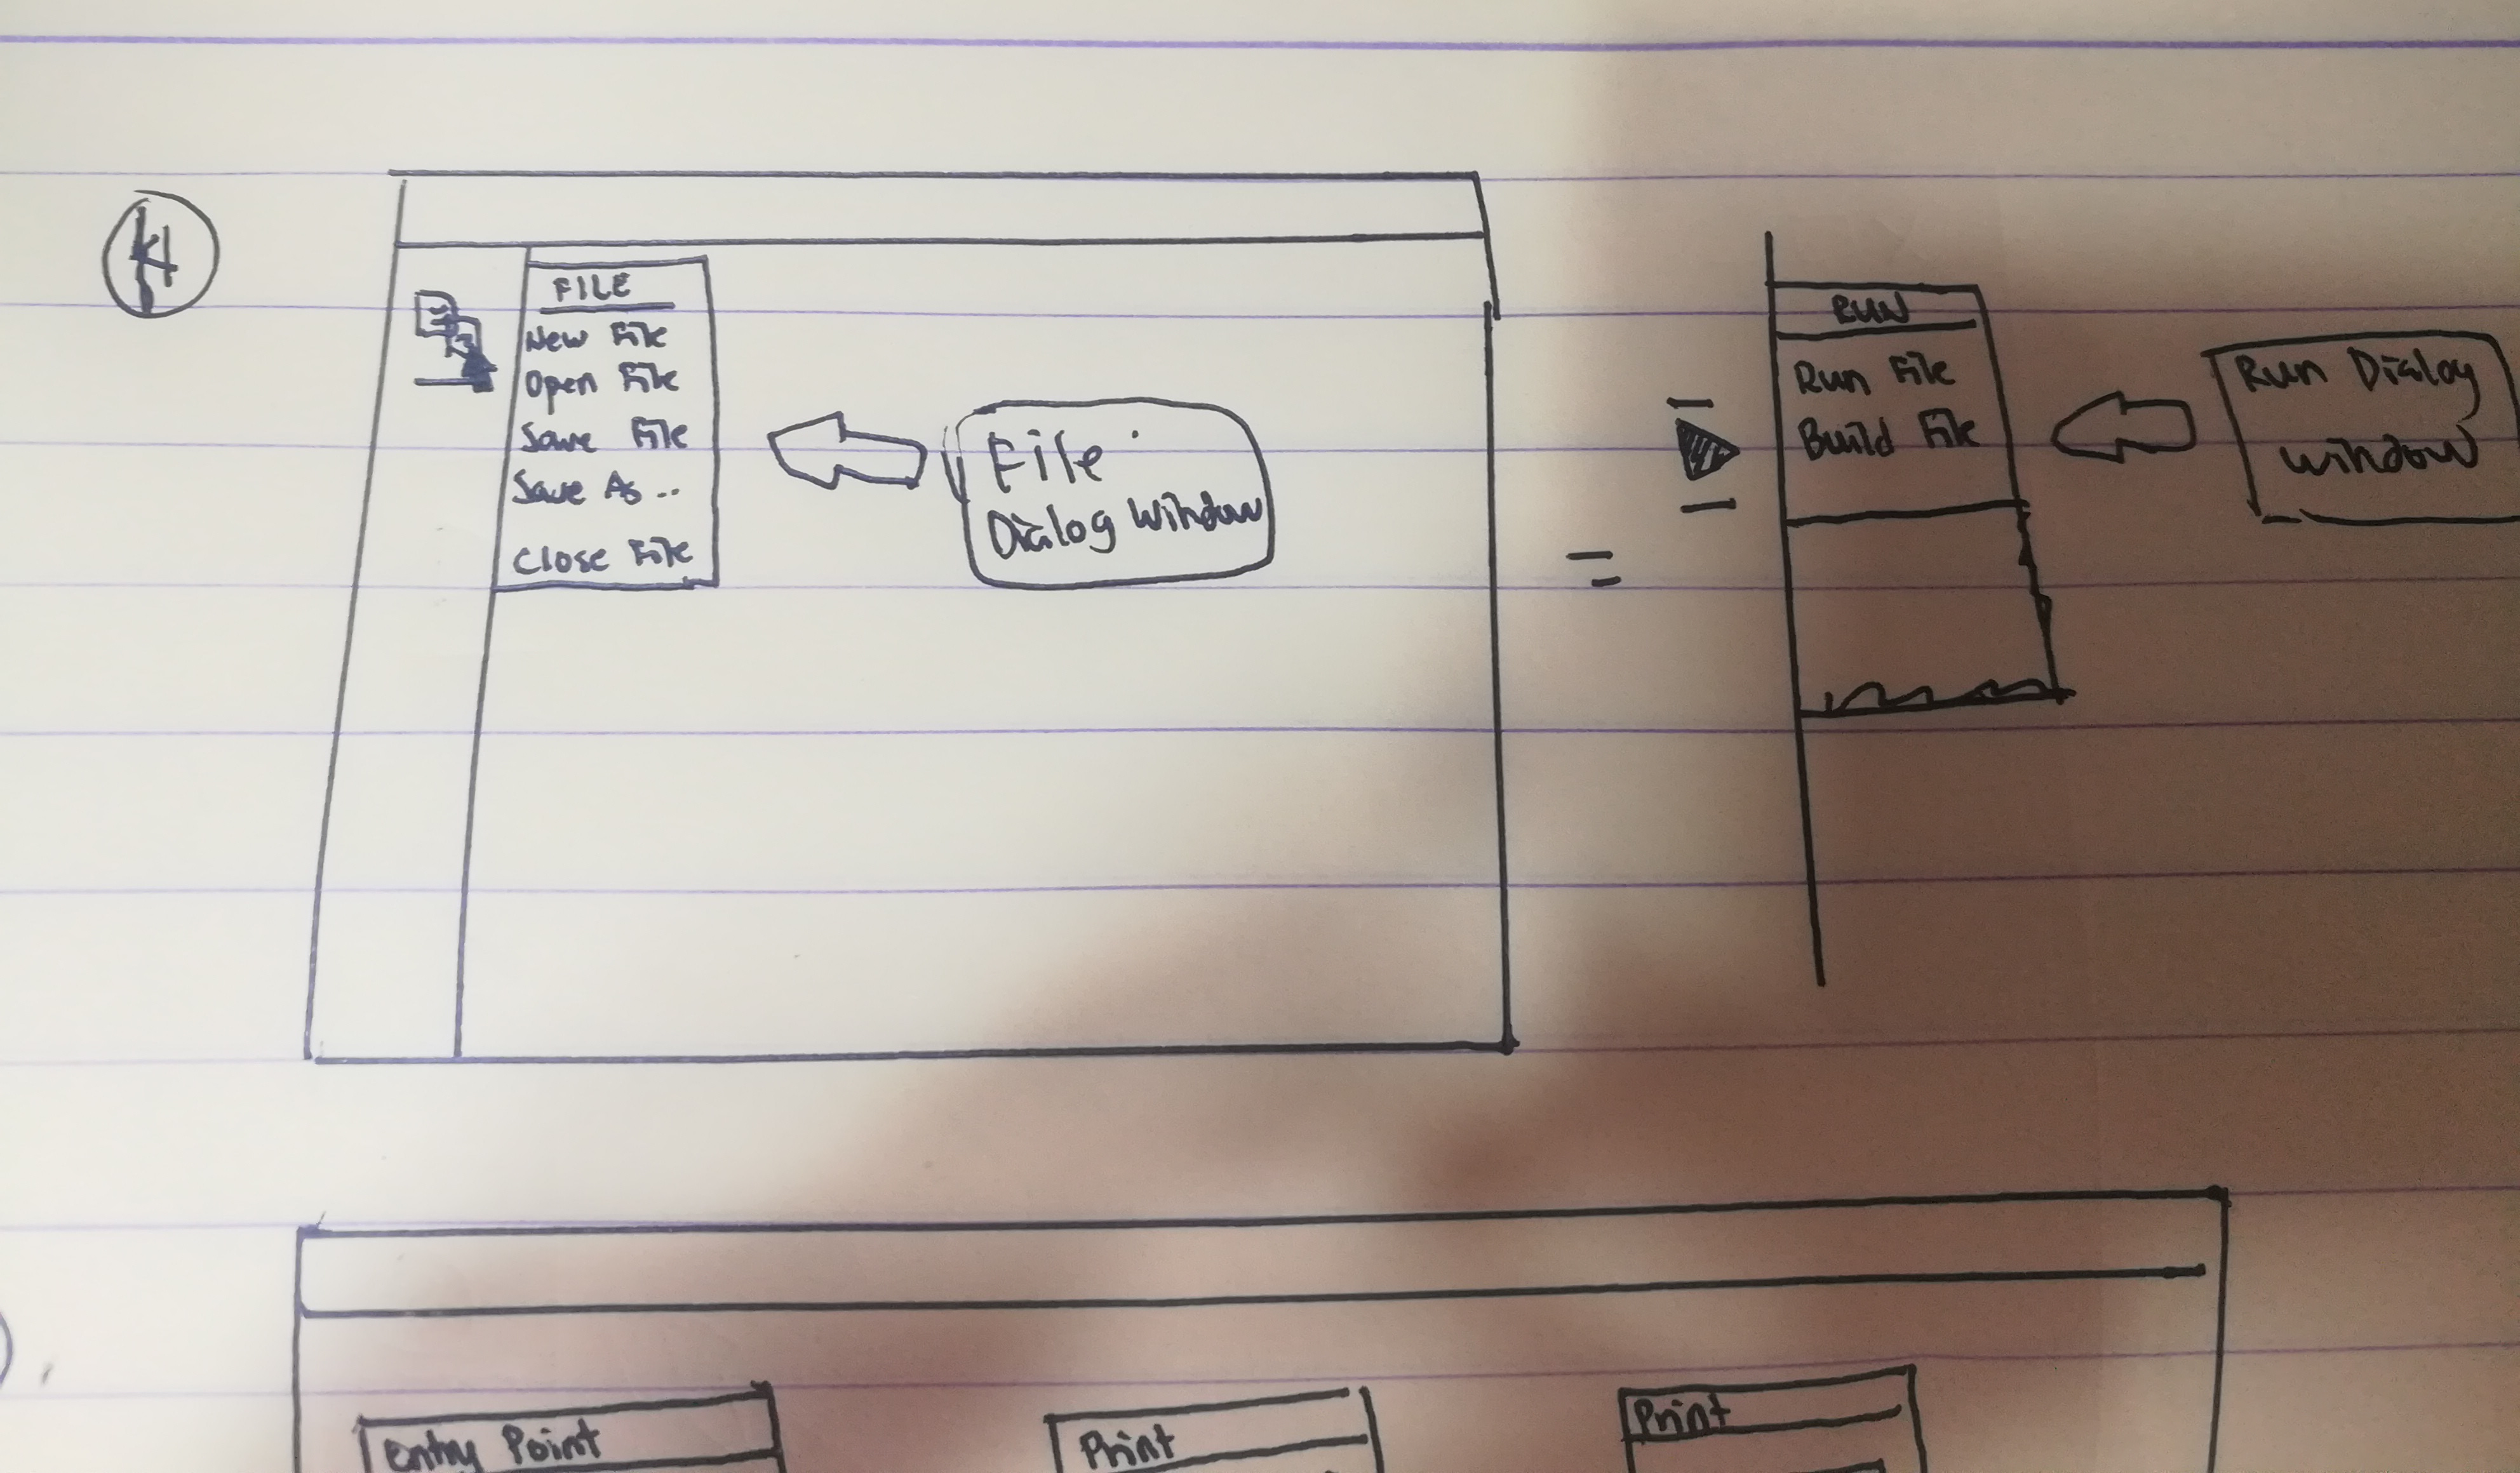 4
FILE
New File
Open File
Save File
Save As ..
Close File
File
Dialog Window
RUN
Run File
Build File
Run Dialog
Window
Entry Point
Print
Print